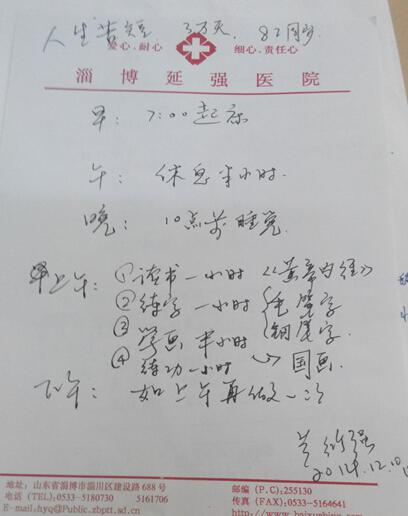 人生苦短 3万天, 82周岁
爱心、耐心 细心、责任心
淄博延强医院
早: 7:00起床
午: 休息半小时.
晚: 10点前睡觉.
上午: ①读书一小时 《黄帝内经》
②练字一小时 毛笔字
③学画半小时 钢笔字.
④练功一小时 → 国画.
下午: 如上午再做一次
2014.12.
地址: 山东省淄博市淄川区建设路688号 邮编(P.C):255130
电话(TEL):0533-5180730 5161706 传真(FAX):0533-5164641
E-mail.hyq@Public.zbptt.sd.cn